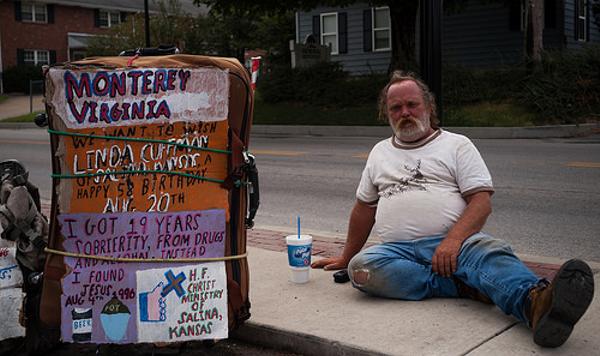 MONTEREY
VIRGINIA
WE WANT TO WISH
LINDA CUFFMAN
A
HAPPY 58 BIRTHDAY
AUG. 20TH
I GOT 19 YEARS
SOBRIERITY, FROM DRUGS
AND ALCOHAL, INSTEAD
I FOUND
JESUS
AUG 4TH 1996
BEER
POT
H.F.
CHRIST
MINISTRY
OF
SALINA,
KANSAS